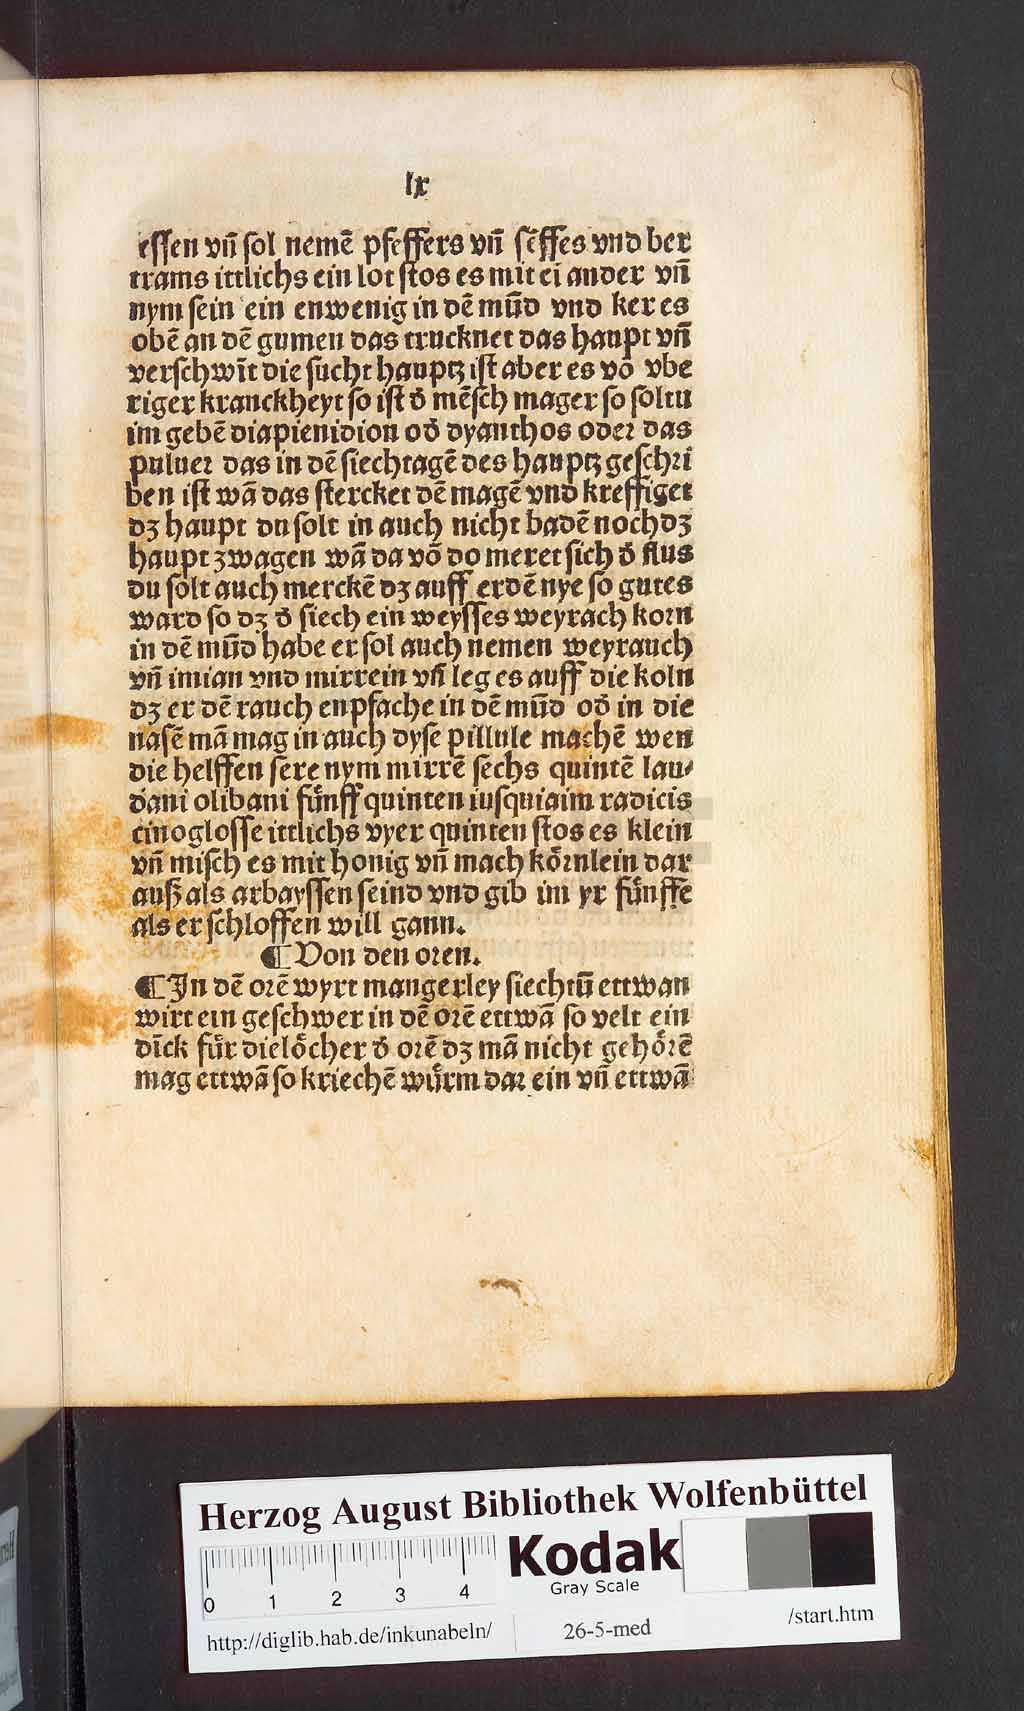 lx
essen vn̄ sol nemē pfeffers vn̄ sēffes vnd ber
trams ittlichs ein lot stos es mit ei ander vn̄
nym sein ein enwenig in dē mūd vnd ker es
obē an dē gumen das trucknet das haupt vn̄
verschwīt die sucht hauptz ist aber es vō vbe
riger kranckheyt so ist d̓ mēsch mager so soltu
im gebē diapienidion od̓ dyanthos oder das
puluer das in dē siechtagē des hauptz geschri
ben ist wā das stercket dē magē vnd kreffiget
dz haupt du solt in auch nicht badē noch dz
haupt zwagen wā da vō do meret sich d̓ flus
du solt auch merckē dz auff erdē nye so gutes
ward so dz d̓ siech ein weysses weyrach korn
in dē mūd habe er sol auch nemen weyrauch
vn̄ imian vnd mirrein vn̄ leg es auff die koln
dz er dē rauch enpfache in dē mūd od̓ in die
nasē mā mag in auch dyse pillule machē wen
die helffen sere nym mirrē sechs quintē lau⸗
dani olibani fünff quinten iusquiaim radicis
cinoglosse ittlichs vyer quinten stos es klein
vn̄ misch es mit honig vn̄ mach körnlein dar
auß als arbayssen seind vnd gib im yr fünffe
als er schloffen will gann.
¶ Von den oren.
¶ In dē orē wyrt mangerley siechtū ettwan
wirt ein geschwer in dē orē ettwā so velt ein
dīck für die löcher d̓ orē dz mā nicht gehörē
mag ettwā so kriechē würm dar ein vn̄ ettwā
Herzog August Bibliothek Wolfenbüttel
Kodak
Gray Scale
0 1 2 3 4
http://diglib.hab.de/inkunabeln/ 26-5-med /start.htm